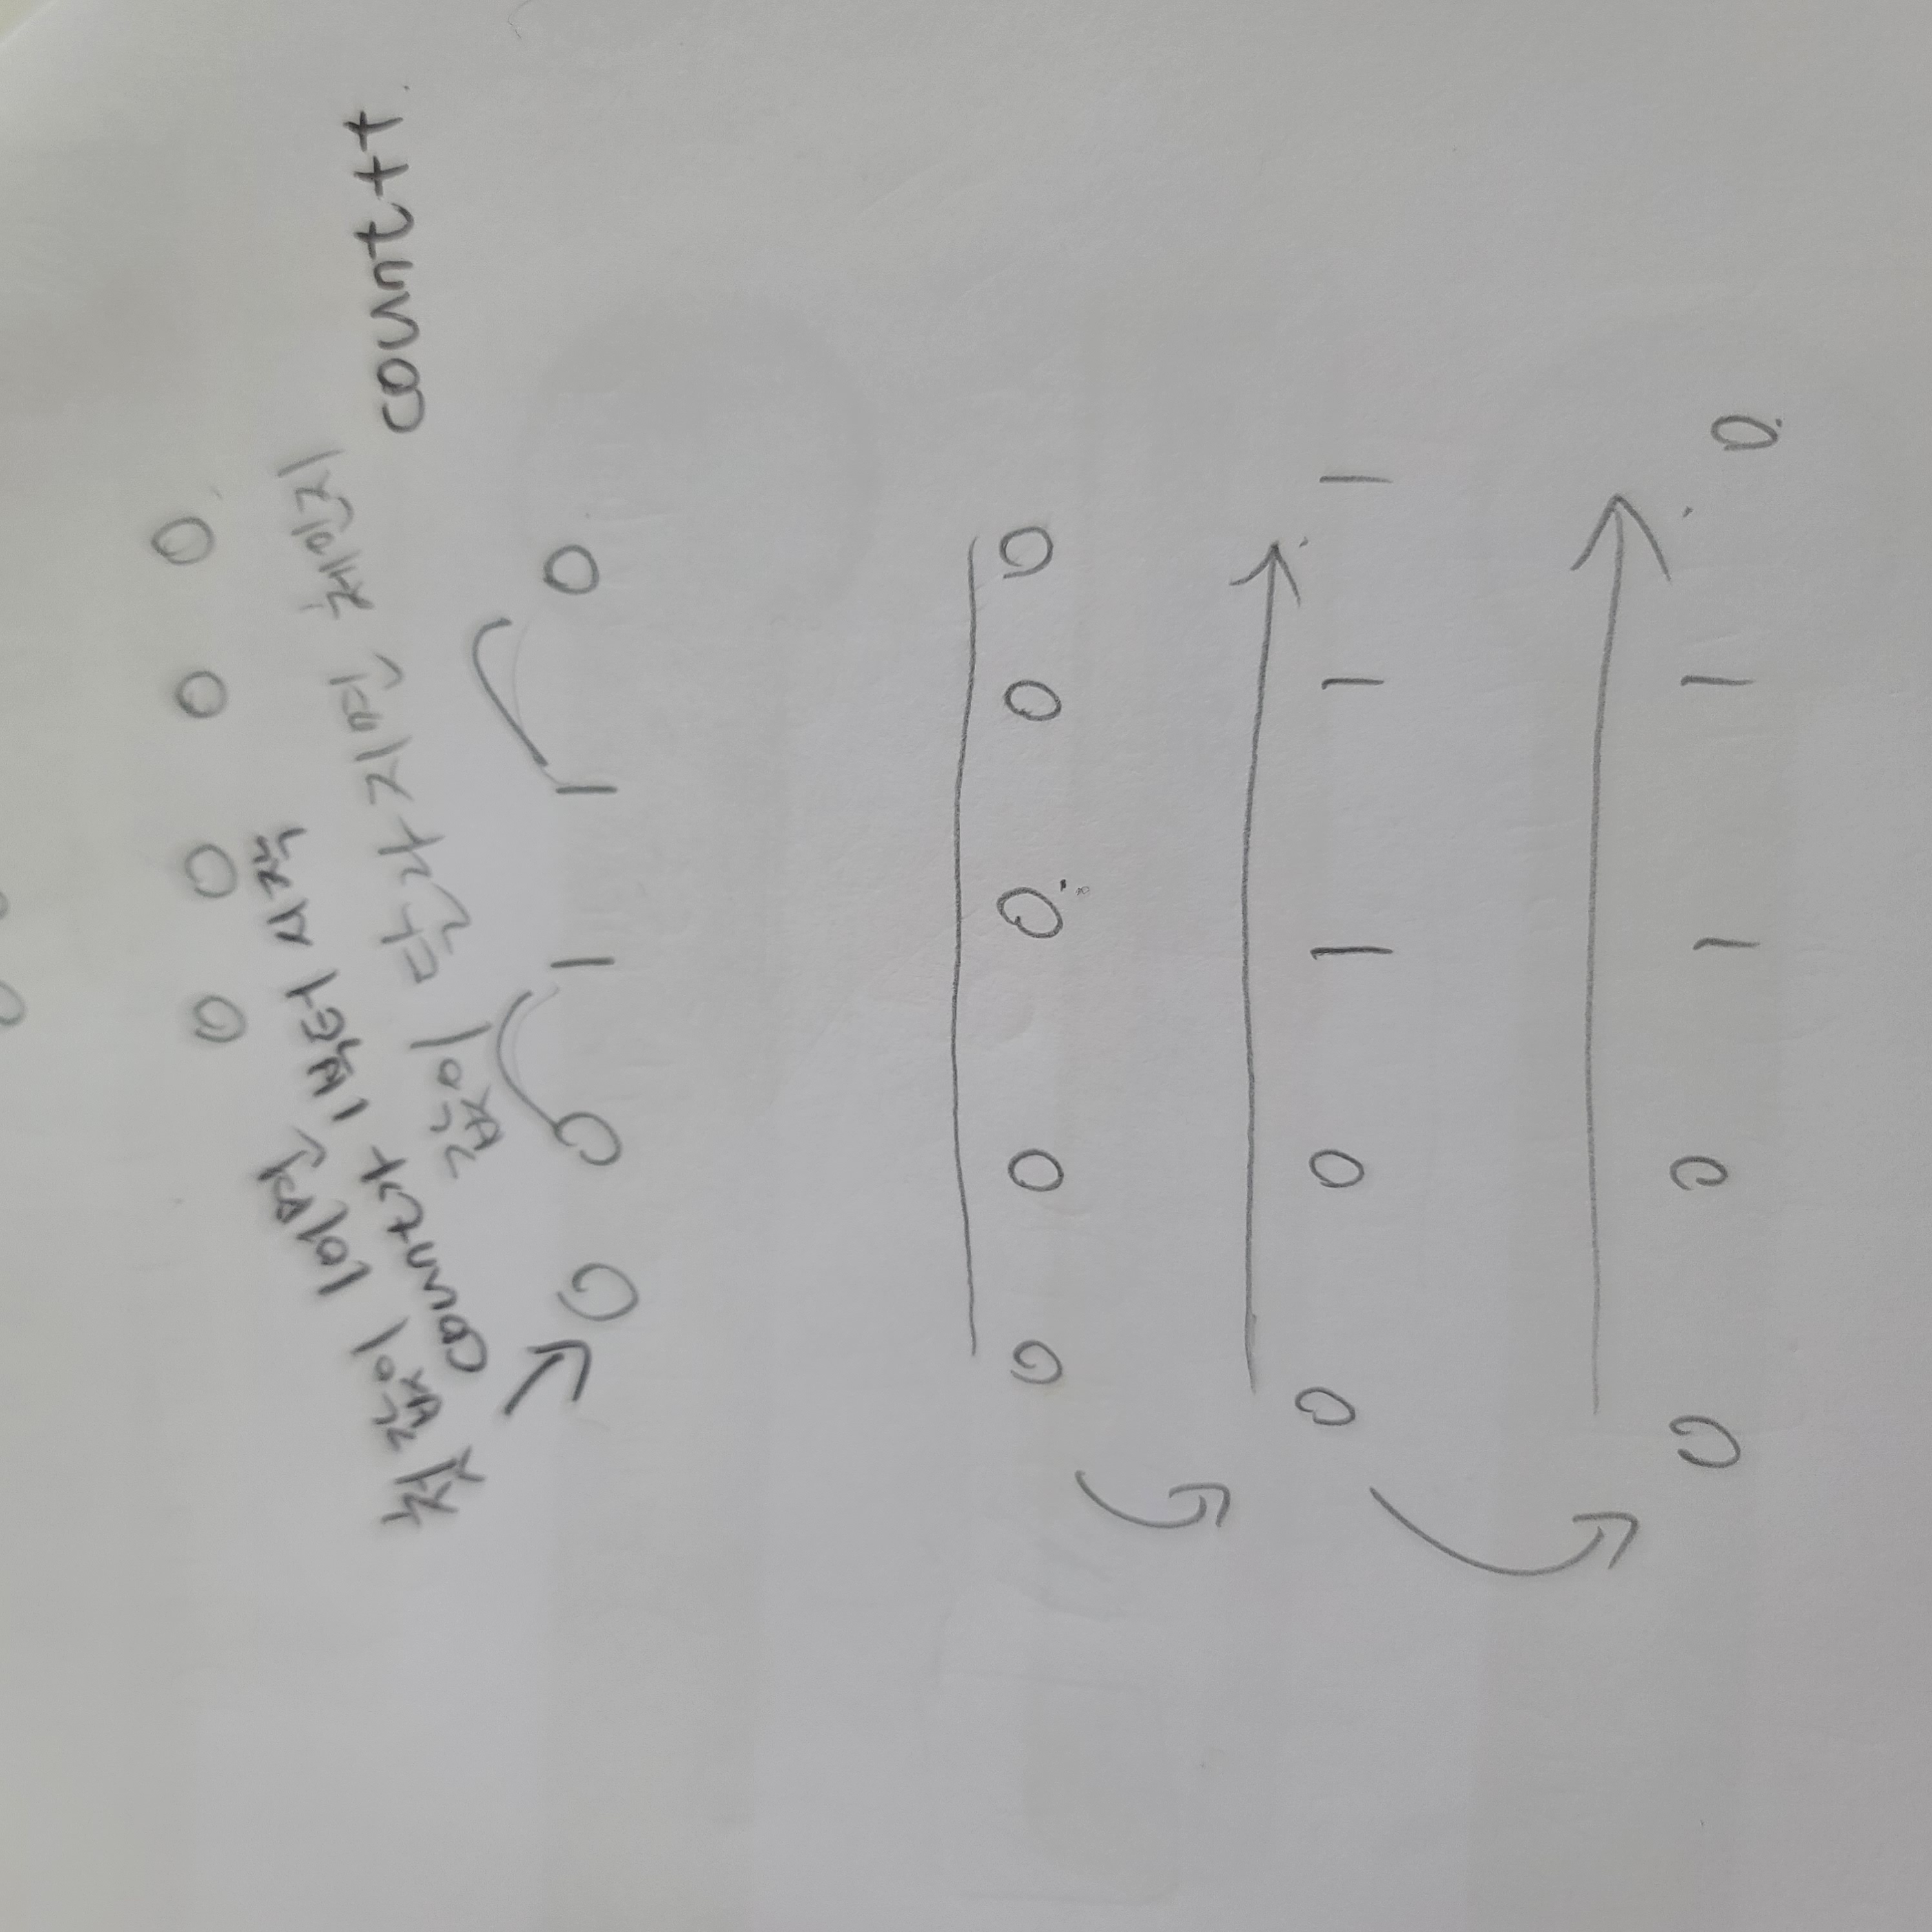 0 0 0 0
첫 값이 1이면
count가 1부터 시작
값이 달라지면 체인지
count++.
0 0 1 1 0
0 0 0 0 0
0 0 1 1 1
0 0 1 1 0